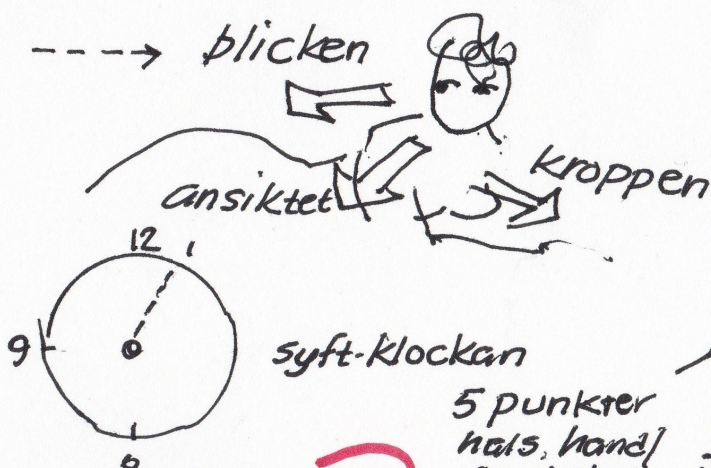 blicken
ansiktet
kroppen
12 1
9
syft-klockan
5 punkter
hals, hand/